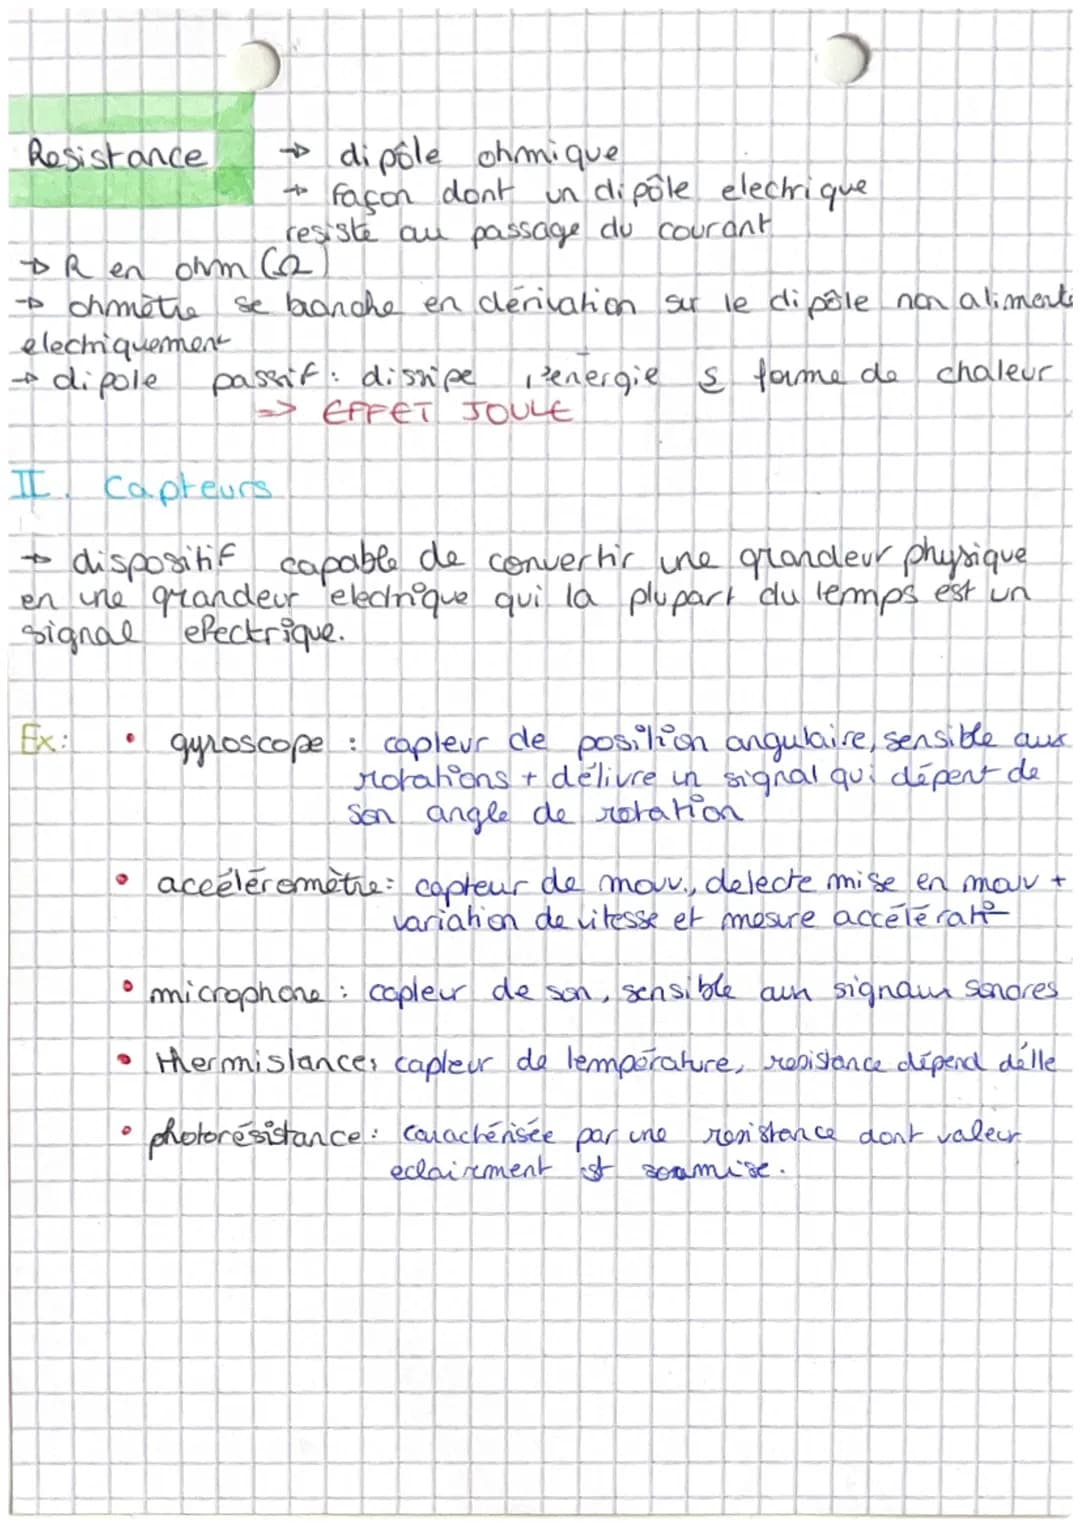 Resistance → dipôle ohmique
→ façon dont un dipôle electrique
resiste au passage du courant
→ R en ohm (Ω)
→ ohmètre se branche en dérivation sur le dipôle non alimenté
electriquement
→ dipole passif : dissipe l'énergie s forme de chaleur
=> EFFET JOULE
II. Capteurs
→ dispositif capable de convertir une grandeur physique
en une grandeur electrique qui la plupart du temps est un
signal electrique.
Ex: • gyroscope : capteur de position angulaire, sensible aux
rotations + délivre un signal qui dépent de
son angle de rotation
• accéléromètre: capteur de mouv., detecte mise en mouv +
variation de vitesse et mesure accélérat°
• microphone : capteur de son, sensible aux signaux sonores
• thermistance: capteur de température, resistance dépend d'elle
• photorésistance: caractérisée par une resistance dont valeur
eclairement est soumise.